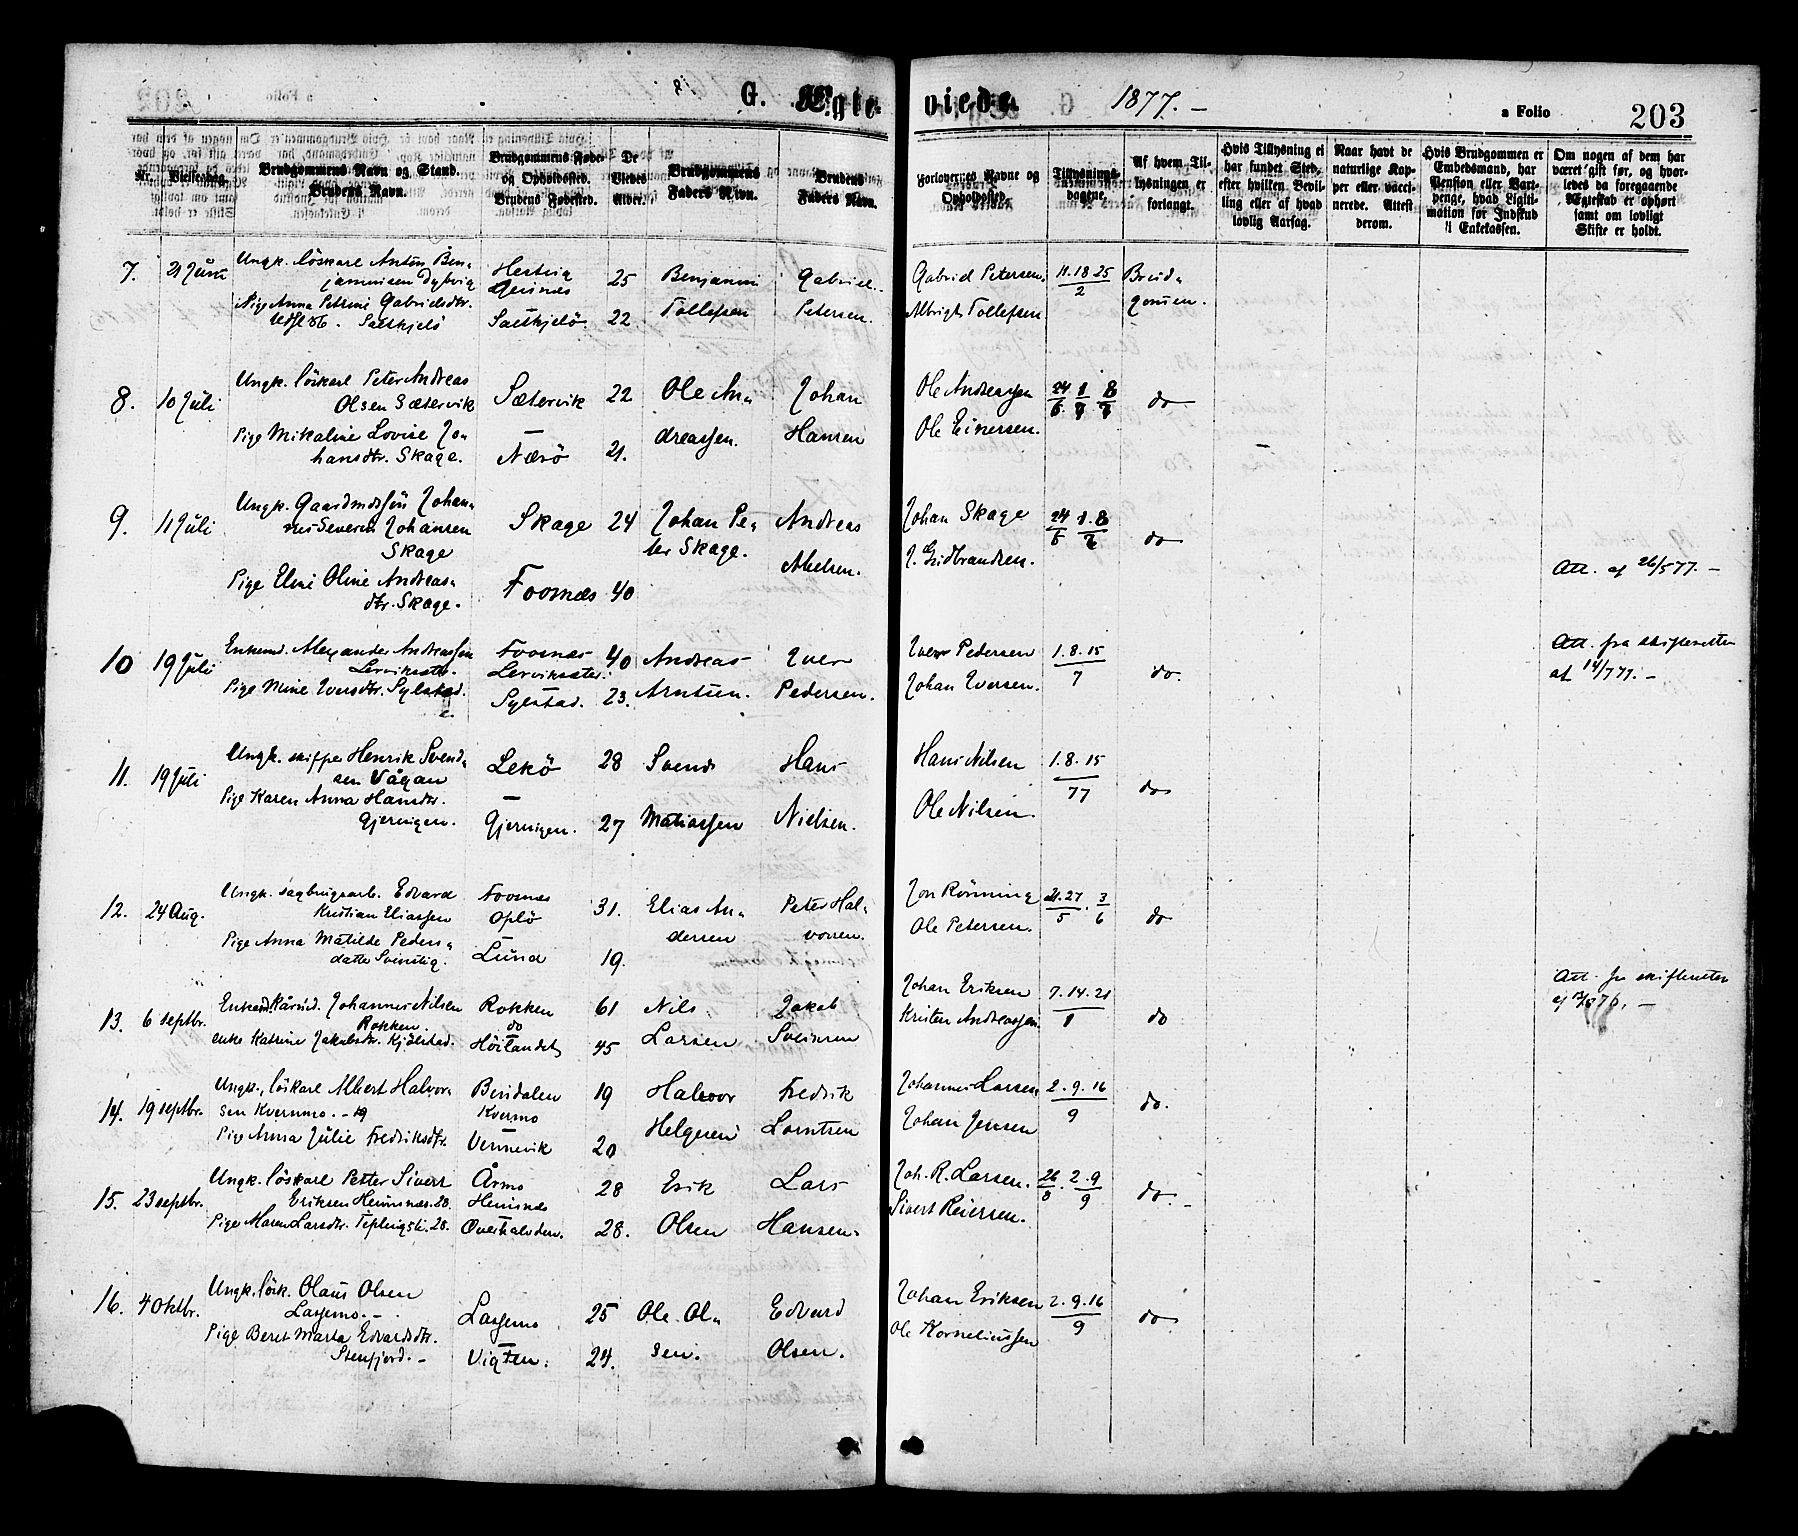 G. Ægte-
viede
1877.-
a Folio
203
Nr.
Vielsesdag.
Brudgommens Navn og Stand.
Brudens Navn.
Brudgommens Føde-
og Opholdssted.
Brudens Fødested.
De
Viedes
Alder.
Brudgommens
Faders Navn.
Brudens
Faders Navn.
Forlovernes Navne og
Opholdssted.
Tillysnings-
dagene.
Af hvem Til-
lysningen er
forlangt.
Hvis Tillysning ei
har fundet Sted,
efter hvilken Bevil-
ling eller af hvad
lovlig Aarsag.
Naar havt de
naturlige Kop-
per eller vacci-
nerede. Attest
derom.
Hvis Brudgommen er
Embedsmand, har
Pension eller Vart-
penge, hvad Ligiti-
mation for Indskud
i Enkekassen.
Om nogen af dem har
været gift før, og hvor-
ledes da foregaaende
Ægteskab er ophørt
samt om lovligt
Skifte er holdt.
7. 21 Juni
Ungk. löskarl Anton Ben-
jaminsen Dybvig
Pige Anna Petrine Gabrielsdtr.
Saltkjelö
25
Saltkjelö 22
Benjamin
Tollefsen
Gabriel
Petersen.
Gabriel Petersen
Albrigt Tollefsen
11. 18 25
2
Brud-
gommen.
8. 10 Juli
Ungk. löskarl Peter Andreas
Olsen Sætervik
Pige Mikaline Lovise Jo-
hansdtr. Skage.
Sætervik 22
Nærö 21.
Ole An-
dreassen.
Johan
Hansen
Ole Andreassen
Ole Einersen.
24 1 8
6 7 7
do.
9. 11 Juli
Ungk. Gaardmdssön Johan-
nes Severin Johansen
Skage
Pige Eline Oline Andreas-
dtr. Skage.
Skage 24
Fovnæs 40
Johan Pe-
ter Skage.
Andreas
Abelsen.
Johan Skage
J. Gildbrandsen.
24 1. 8
6 7
do
Att. af 26/5 77. -
10 19 Juli
Enkemd. Alexander Andreassen
Lerviksæter.
Pige Mine Iversdtr. Sylstad.
Fovnæs 40
Lerviksæter.
Sylstad. 23.
Andreas
Arntsen.
Iver
Pedersen.
Iver Pedersen
Johan Iversen.
1. 8. 15
7
do.
Att. fra skifteretten
af 14/7 77. -
11. 19 Juli
Ungk. skipper Henrik Svend-
sen Vågan
Pige Karen Anna Hansdtr.
Gjerningen.
Lekö 28
Gjerningen. 27
Svend
Matiassen
Hans
Nielsen.
Hans Nilsen
Ole Nilsen.
1. 8. 15
77
do
12. 24 Aug.
Ungk. sagbrugsarb. Edvard
Kristian Eliassen
Pige Anna Matilde Peders-
datter
Fovnæs
Oplö 31.
Lund 19.
Elias An-
dersen
Peter Hal-
vorsen.
Jon Rönning
Ole Petersen.
20. 27 3
5 6
do
13. 6 septbr.
Enkemd. Johannes Nilsen
Rokken.
enke Katrine Jakobsdtr. Kjölstad.
Rokken 61
do
Höilandet 45
Nils
Larsen
Jakob
Sveinsen
Johan Eriksen
Kristen Andreassen
7. 14. 21
8
do
Att. fra skifteretten
14. 19 septbr.
Ungk., löskarl Albert Halvor-
sen Kvernmo. - 19
Pige Anna Julie Fredriksdtr.
Bindalen 19
Kvernmo
Vennevik 20
Halvor
Helgesen
Fredrik
Lorntsen
Johannes Larsen
Johan Jensen
2. 9. 16
9
do.
15. 23 septbr.
Ungk. löskarl Petter Sivert
Eriksen Hemnæs. 28.
Pige Maren Larsdtr. Teplingsli. 28.
Årmo
Hemnæs 28
Overhalvden. 28.
Erik
Olsen
Lars
Hansen.
Joh. R. Larsen.
Sivert Reiersen.
26 2. 9
8 9
do.
16. 4 Oktbr.
Ungk. lösk. Olaus Olsen
Lassemo. -
Pige Beret Marta Edvardsdtr.
Stenfjord. -
Lassemo 25
Vigten. 24.
Ole Ol-
sen.
Edvard
Olsen.
Johan Eriksen
Ole Korneliussen
2. 9. 16
9
do.